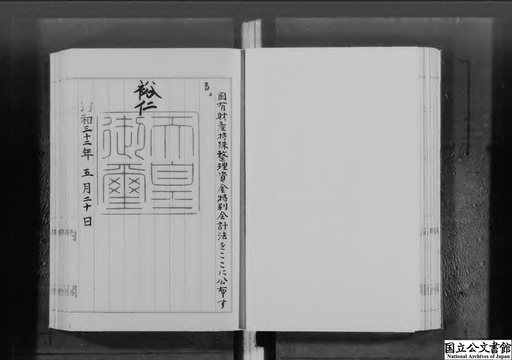 国有財産特殊整理資金特別会計法をここに公布す
る。
裕仁
天皇
御璽
昭和三十二年五月二十日
国立公文書館
National Archives of Japan